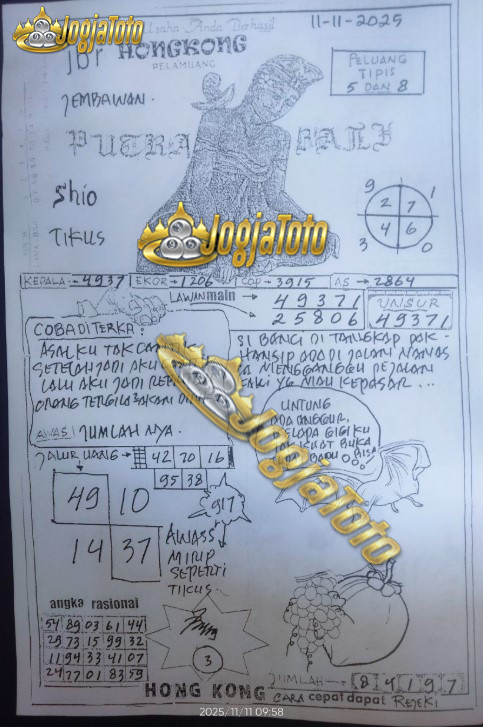 JogjaToto
Usaha Anda Berhasil
11-11-2025
HONGKONG
PELAMUANG
PELUANG
TIPIS
5 DAN 8
JEMBAWAN.
PUTRA BALI
Shio
TIKUS
9 1
2 7
4 6
3 0
JogjaToto
KEPALA → 4937 EKOR → 1206 COP → 3915 AS → 2864
LAWAN main → 49371
25806
UNSUR
49371
COBA DITERKA:
ASALKU TAK
SETELAH JADI AKU
LALU AKU JADI
ORANG TERGILA
SI BANCI DI TANGKAP PAK-
HANSIP DI JALAN NANAS
MENGGANGGU PEJALAN
KAKI YG MAU KEPASAR...
AWAS! JUMLAH NYA.
JALUR UANG → 42 70 16
95 38
UNTUNG
ADA ANGGUR,
GIGIKU
BUKA
BISA
JogjaToto
49 10
14 37
917
AWASS
MIRIP
SEPERTI
TIKUS
angka rasional
54 89 03 61 44
29 73 15 99 32
11 94 33 41 07
24 77 01 83 59
3
JUMLAH → 8 4 1 9 7
HONG KONG CARA cepat dapat REJEKI
2025/11/11 09:58